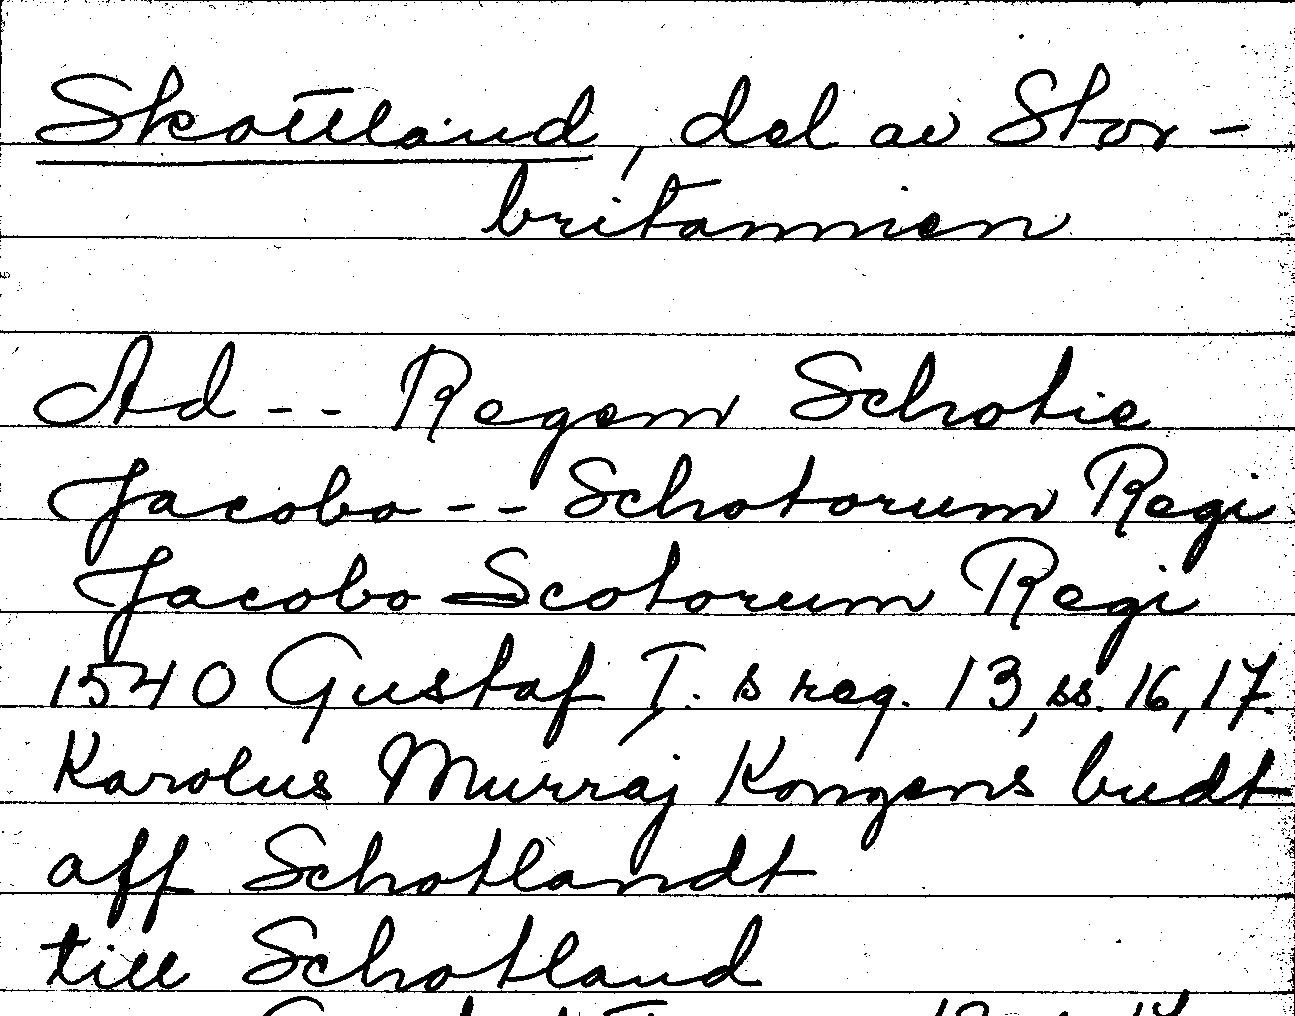 Skottland, del av Stor-
britannien
Ad -- Regem Schotie
Jacobo -- Schotorum Regi
Jacobo Scotorum Regi
1540 Gustaf I.s reg. 13, ss. 16, 17.
Karolus Murraj Kongens budt
aff Schotlandt
till Schotland